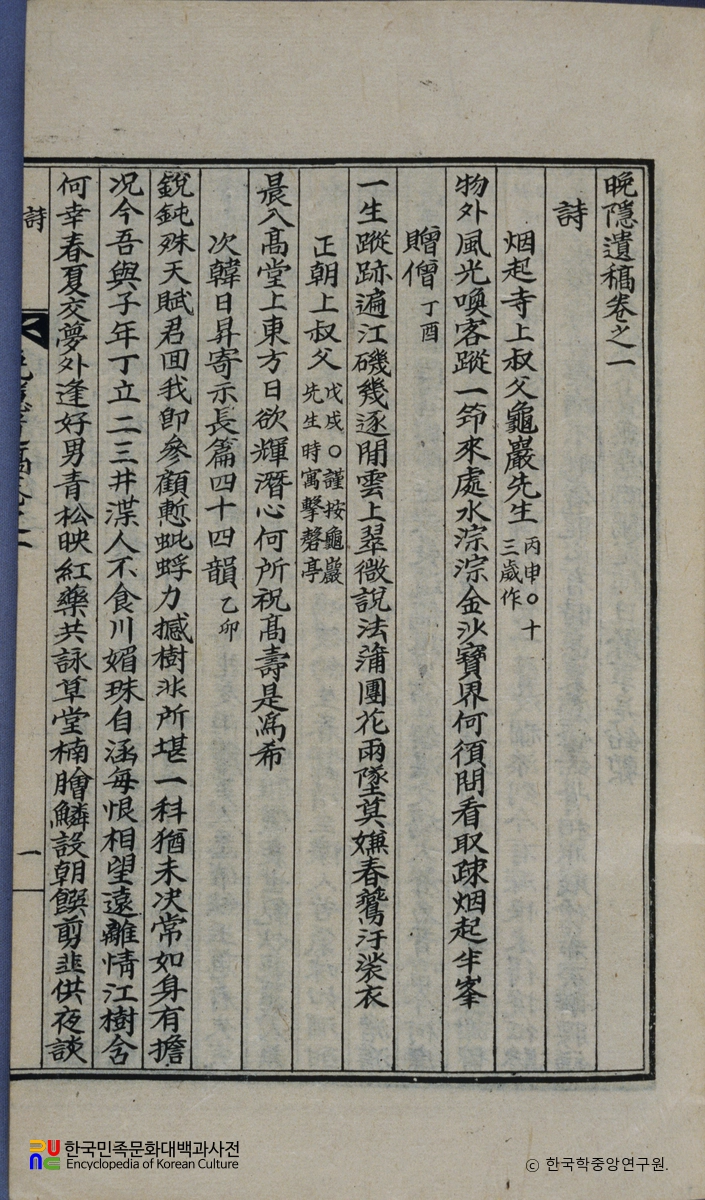 晩隱遺稿卷之一
詩
烟起寺上叔父龜巖先生 丙申○十三歲作
物外風光喚客蹤一筇來處水淙淙金沙寶界何須問看取疎烟起半峯
贈僧 丁酉
一生蹤跡遍江磯幾逐閒雲上翠微說法蒲團花雨墜莫嫌春鶯汙裳衣
正朝上叔父 戊戌○謹按龜巖先生時寓擊磬亭
晨入高堂上東方日欲輝潛心何所祝高壽是爲希
次韓日昇寄示長篇四十四韻 乙卯
銳鈍殊天賦君回我卽參顧慙蚍蜉力撼樹非所堪一科猶未决常如身有擔
况今吾與子年丁立二三井渫人不食川媚珠自涵每恨相望遠離情江樹含
何幸春夏交夢外逢好男青松映紅藥共詠草堂楠膾鱗設朝饌剪韭供夜談
詩
一
한국민족문화대백과사전
Encyclopedia of Korean Culture
© 한국학중앙연구원.